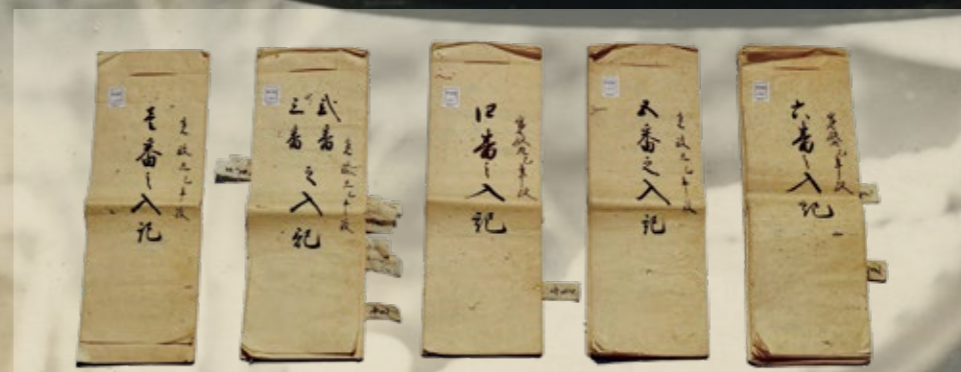 寛政九巳年改
壱番之入記
寛政九巳年改
弐番
三番
之入記
寛政九巳年改
四番之入記
寛政九巳年改
五番之入記
寛政九巳年改
六番之入記